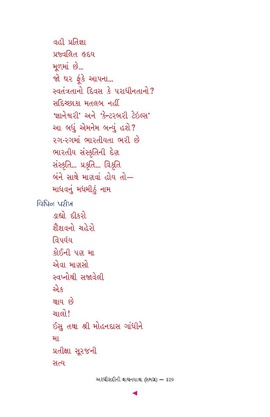 વહી પ્રતિજ્ઞા
પ્રજ્વલિત હૃદય
મૂળમાં છે...
જો ઘર ફૂંકે આપના...
સ્વતંત્રતાનો દિવસ કે પરાધીનતાનો?
સદિચ્છાકા મતલબ નહીં
‘જ્ઞાનેશ્વરી’ અને ‘કેન્ટરબરી ટેઇલ્સ’
આ બધું એમનેમ બન્યું હશે?
રગ-રગમાં ભારતીયતા ભરી છે
ભારતીય સંસ્કૃતિની દેણ
સંસ્કૃતિ... પ્રકૃતિ... વિકૃતિ
બંને સાથે માણવાં હોય તો—
માધવનું મધમીઠું નામ
વિપિન પરીખ
ડાહ્યો દીકરો
શૈશવનો ચહેરો
વિપર્યય
કોઈની પણ મા
એવા માણસો
સ્વપ્નોથી સજાવેલી
એક
થાય છે
ચાલો!
ઈસુ તથા શ્રી મોહનદાસ ગાંધીને
મા
પ્રતીક્ષા સૂરજની
સત્ય
— 119